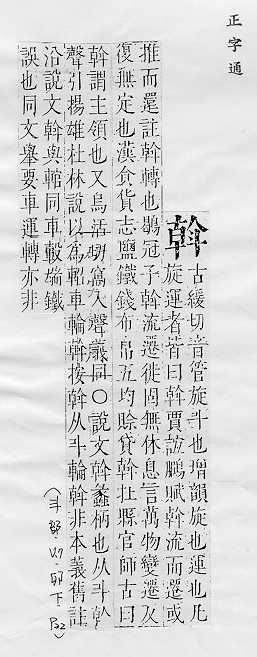 正字通
斡
古緩切音管旋斗也增韻旋也運也凡
旋運者皆曰斡賈誼鵩賦斡流而遷或
推而還註斡轉也鶡冠子斡流遷徙固無休息言萬物變遷反
復無定也漢食貨志鹽鐵錢布帛五均賖貸斡在縣官師古曰
斡謂主領也又烏活切剜入聲義同○說文斡蠡柄也从斗倝
聲引揚雄杜林說以為軺車輪斡按斡从斗輪斡非本義舊註
沿說文斡與輨同車轂端鐵
誤也同文舉要車運轉亦非